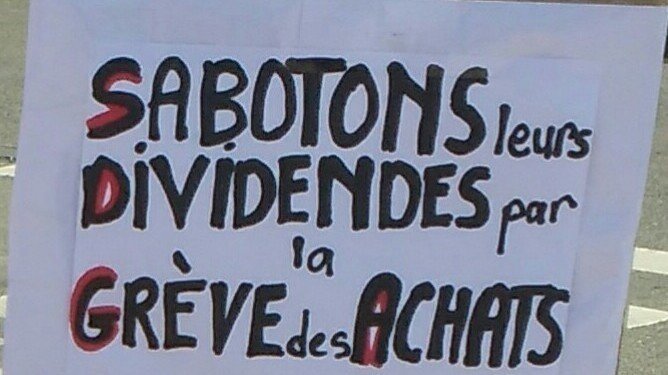 SABOTONS leurs
DIVIDENDES par
la
GRÈVE des ACHATS